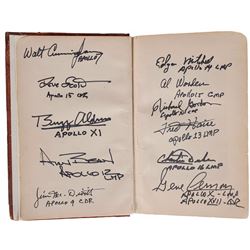 Walt Cunningham
APOLLO 7
Dave Scott
Apollo 15 CDR
Buzz Aldrin
APOLLO XI
Alan Bean
APOLLO 12
LMP
Jim McDivitt
APOLLO 9 CDR
Edgar Mitchell
APOLLO 14 LMP
Al Worden
APOLLO 15 CMP
Richard Gordon
Fred Haise
APOLLO 13 LMP
Charlie Duke
APOLLO 16 LMP
Gene Cernan
APOLLO X - LMP
APOLLO XVII - CDR